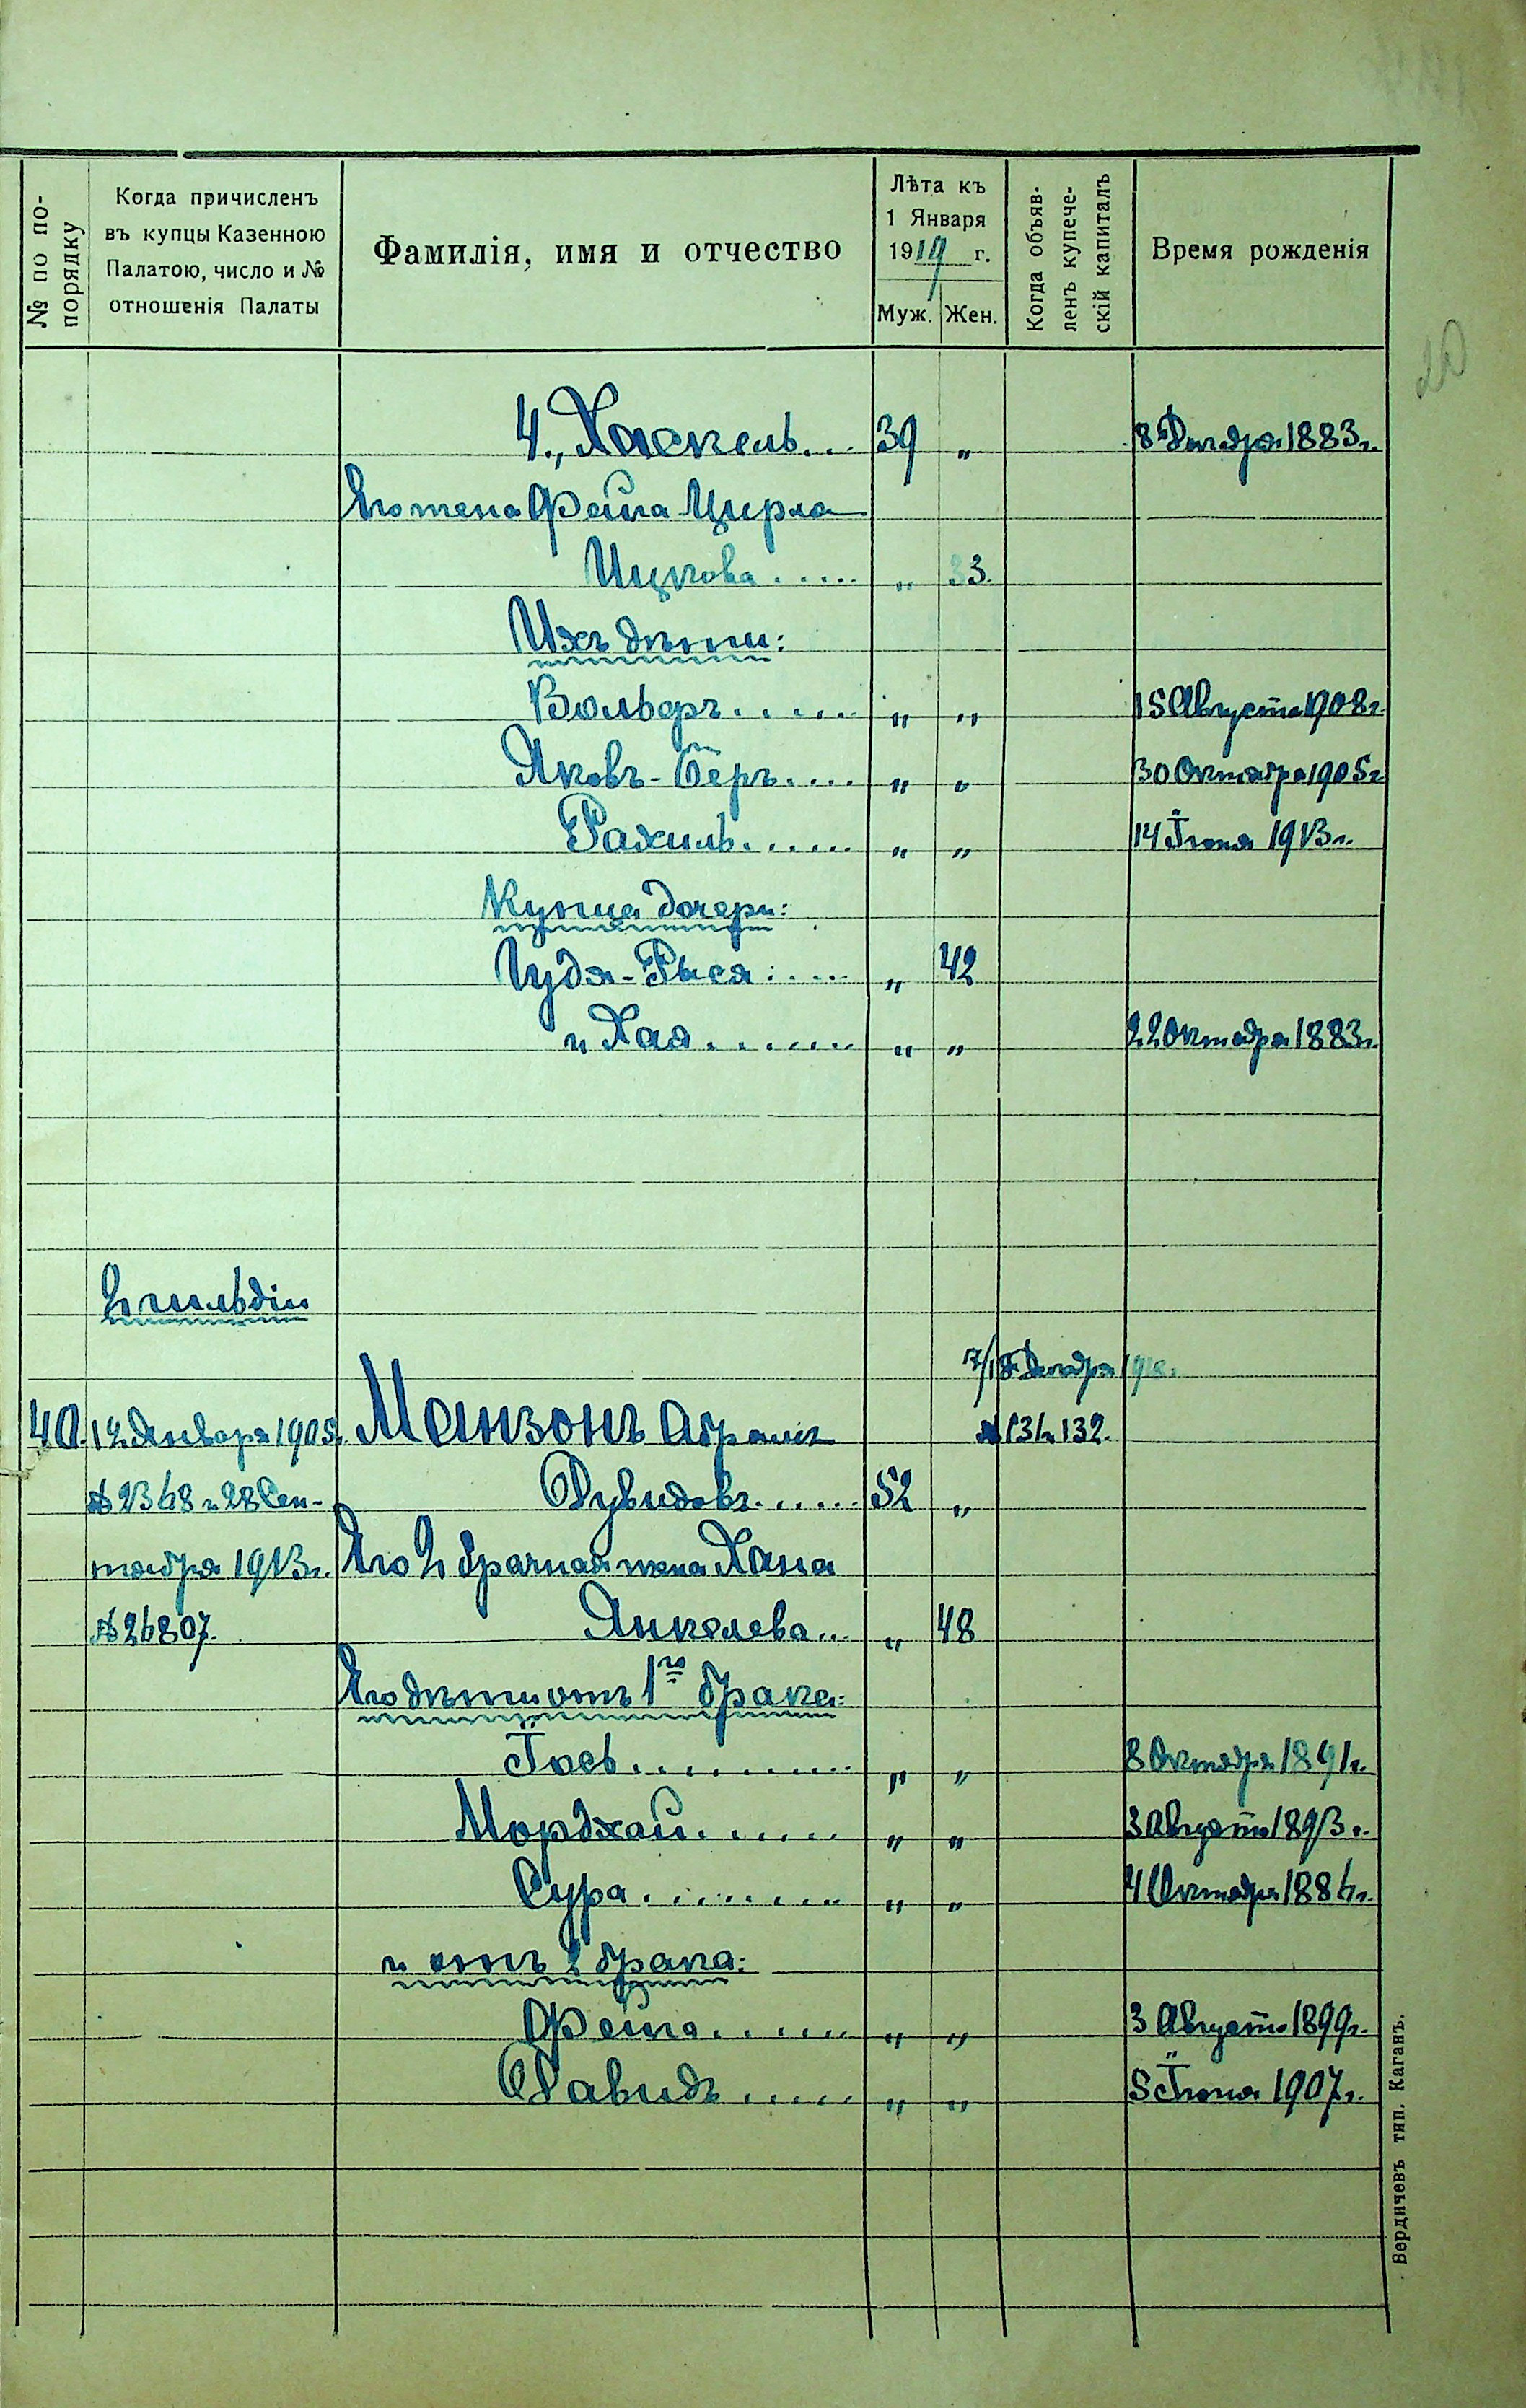 № по по-
порядку
Когда причисленъ
въ купцы Казенною
Палатою, число и №
отношенія Палаты
Фамилія, имя и отчество
Лѣта къ
1 Января
1919 г.
Муж. Жен.
Когда объяв-
ленъ купече-
скій капиталъ
Время рожденія
20
4., Хаскель... 39 „ 8 Декабря 1883 г.
Его жена Фейга Цирла
Ицкова..... „ 33.
Ихъ дѣти:
Вольфъ...... „ „ 15 Августа 1908 г.
Яковъ-Беръ.... „ „ 30 Октября 1905 г.
Рахиль...... „ „ 14 Іюня 1913 г.
Купца дочери:
Гудя-Рыся..... „ 42
и Хая....... „ „ 22 Октября 1883 г.
2 гильдіи
17/18 Декабря 1918.
40. 12 Января 1905 г. Манзонъ Абрамъ № 131 и 132.
№ 2368 и 28 Сен- Дувидовъ...... 52 „
тября 1913 г. Его 2 брачная жена Хана
№ 26807. Янкелева... „ 48
Его дѣти отъ 1го брака:
Іось.......... „ „ 8 Октября 1891 г.
Мордхай...... „ „ 3 Августа 1893 г.
Сура......... „ „ 4 Октября 1886 г.
и отъ 2 брака:
Фейга...... „ „ 3 Августа 1899 г.
Давидъ..... „ „ 5 Іюня 1907 г.
Бердичевъ тип. Каганъ.